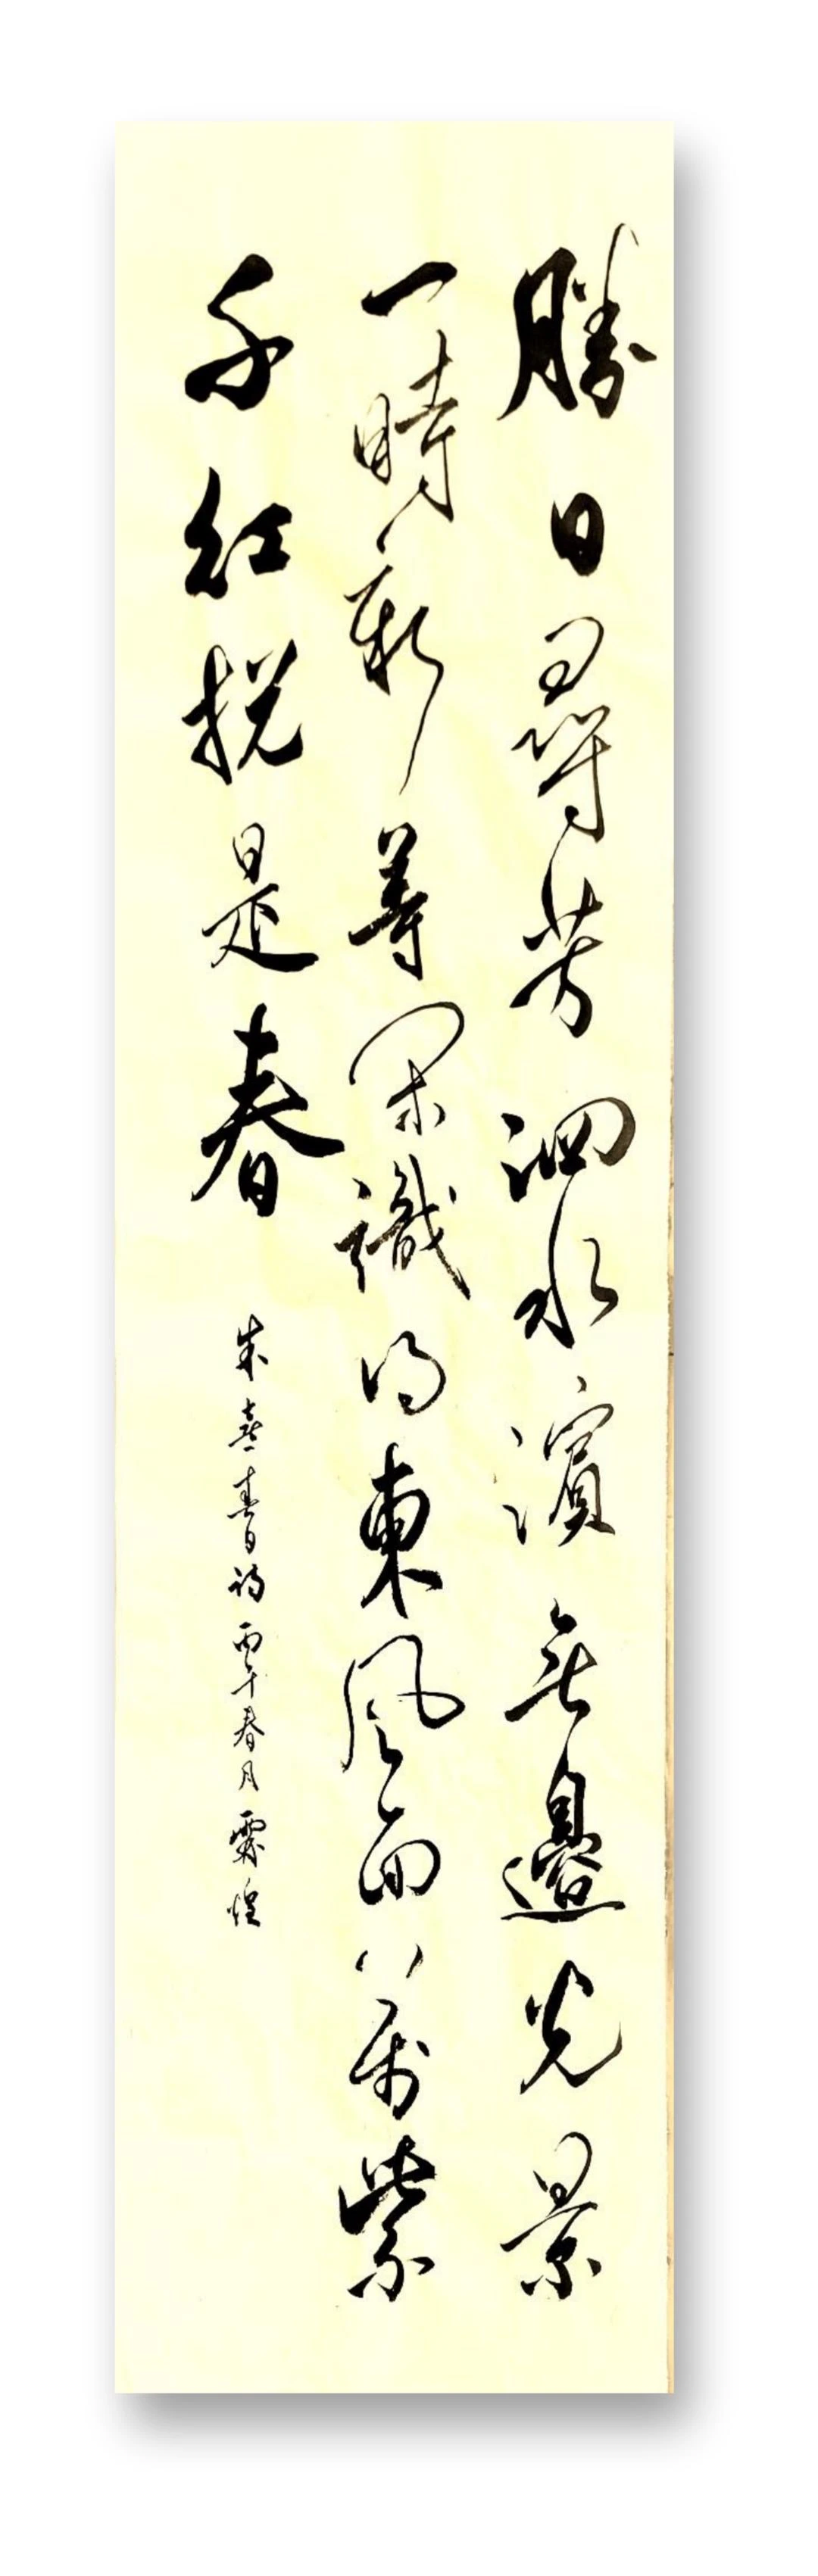 勝日尋芳泗水濱無邊光景
一時新等閑識得東風面萬紫
千紅總是春
朱熹春日詩丙午春月